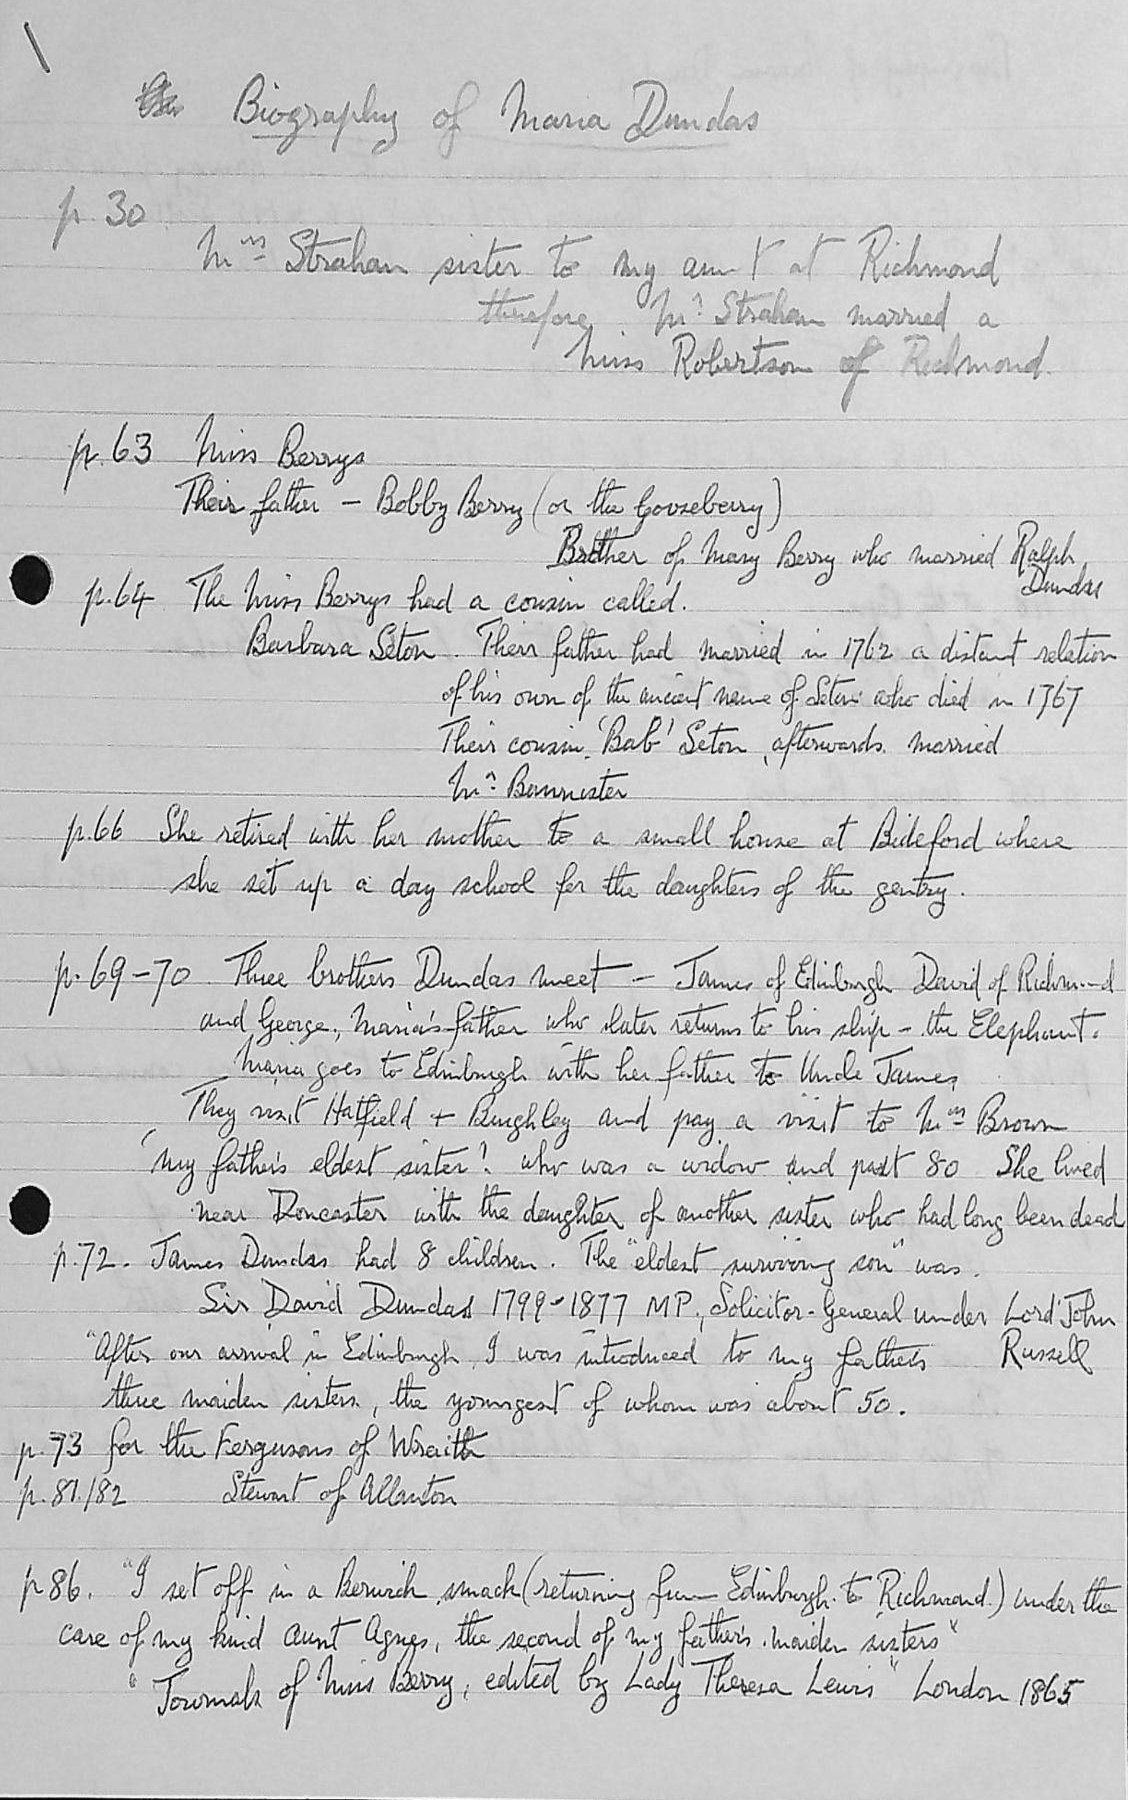 Biography of Maria Dundas
p. 30
Mrs Strahan sister to my aunt at Richmond
therefore Mr. Strahan married a
Miss Robertson of Richmond.
p. 63 Miss Berrys
Their father – Bobby Berry (or the Gooseberry)
Brother of Mary Berry who married Ralph
Dundas
p. 64 The Miss Berrys had a cousin called.
Barbara Seton. Their father had married in 1762 a distant relation
of his own of the ancient name of Seton who died in 1767
Their cousin 'Bab' Seton, afterwards married
Mr. Bannister
p. 66 She retired with her mother to a small house at Bideford where
she set up a day school for the daughters of the gentry.
p. 69–70 Three brothers Dundas meet – James of Edinburgh David of Richmond
and George, Maria's father who later returns to his ship – the Elephant.
Maria goes to Edinburgh with her father to Uncle James
They visit Hatfield + Burghley and pay a visit to Mrs Brown
'my father's eldest sister' who was a widow and past 80 She lived
near Doncaster with the daughter of another sister who had long been dead
p. 72. James Dundas had 8 children. The "eldest surviving son" was.
Sir David Dundas 1799–1877 MP., Solicitor-General under Lord John
Russell
"After our arrival in Edinburgh, I was introduced to my father's
three maiden sisters, the youngest of whom was about 50.
p. 73 for the Fergusons of Wraith
p. 81./82 Stewart of Allanton
p 86. "I set off in a Berwick smack (returning from Edinburgh to Richmond.) under the
care of my kind aunt Agnes, the second of my father's maiden sisters"
"Journals of Miss Berry, edited by Lady Theresa Lewis" London 1865